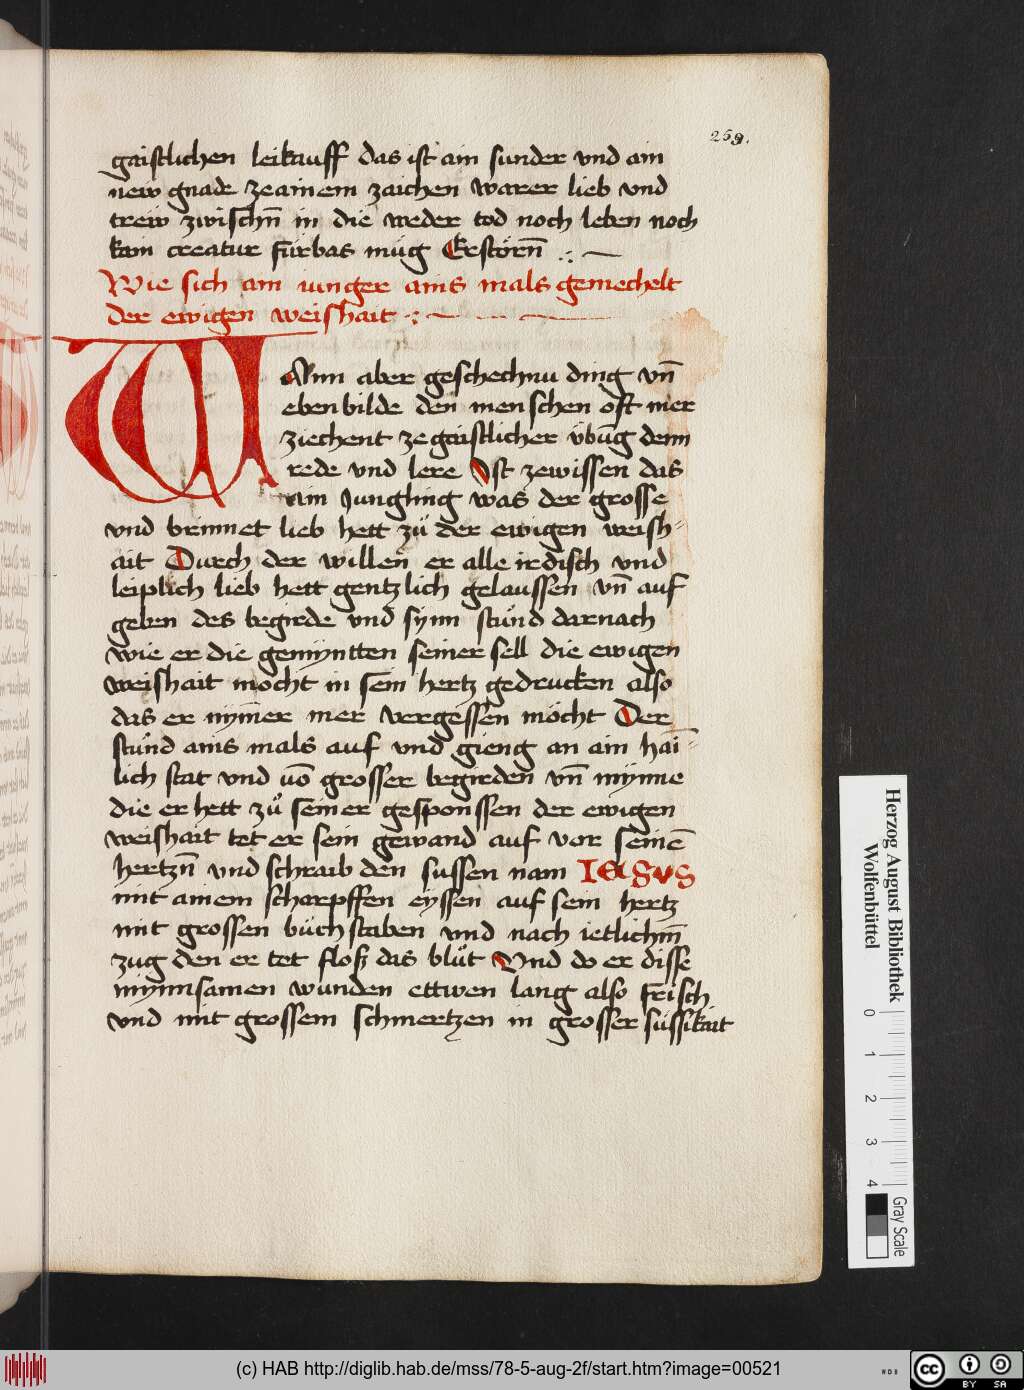 259.
gaistlichen leikauff das ist ain sunder vnd ain
new gnade ze ainem zaichen warer lieb vnd
trew zwischñ in die weder tod noch leben noch
kain creatur fürbas müg Erstörñ
Wie sich ain iunger ains mals gemechelt
der ewigen weishait
WAnn aber geschechnu ding vñ
ebenbilde den menschen oft mer
ziechent ze gaistlicher übũg denn
rede vnd lere Ist zewissen das
ain Jungling was der grosse
vnd brinnet lieb hett zů der ewigen weish-
ait Durch der willen er alle irdisch vnd
leiplich lieb hett gentzlich gelaussen vñ auf
geben des begirde vnd synn stůnd darnach
wie er die gemyntten seiner sell die ewigen
weishait möcht in sein hertz gedrucken also
das er nym̄er mer vergessen möcht Der
stůnd ains mals auf vnd gieng an ain hai-
lich stat vnd vō grosser begirden vñ mynne
die er hett zů seiner gesponssen der ewigen
weishait tet er sein gewand auf vor seinē
hertzñ vnd schraib den süssen nam IESUS
mit ainem scharpffen eyssen auf sein hertz
mit grossen büchstaben vnd nach ietlichm̄
zug den er tet flosz das blůt Vnd do er disse
mynnsamen wunden ettwen lang also frisch
vnd mit grossem schmertzen in grosser süssikait
Herzog August Bibliothek
Wolfenbüttel
0 1 2 3 4
Gray Scale
(c) HAB http://diglib.hab.de/mss/78-5-aug-2f/start.htm?image=00521
cc BY SA